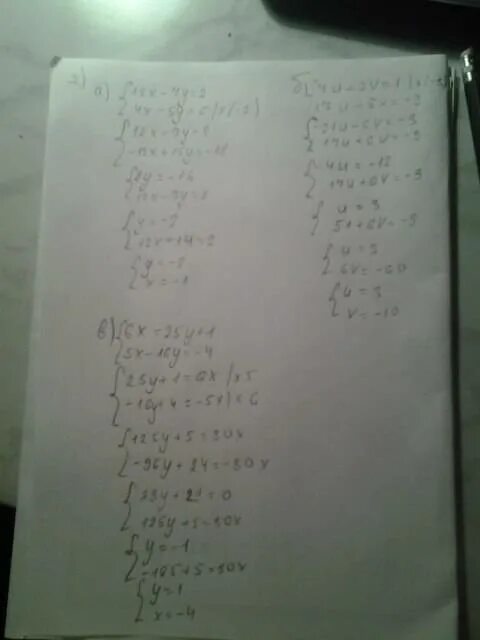 2)
а) {12x-7y=2
4x-5y=6 |x(-3)
{12x-7y=2
-12x+15y=-18
{8y=-16
12x-7y=2
{y=-2
12x+14=2
{y=-2
x=-1
б) {7u+2v=1
17u+6v=-9
{-21u-6v=-3
17u+6v=-9
{-4u=-12
17u+6v=-9
{u=3
51+6v=-9
{u=3
6v=-60
{u=3
v=-10
в) {6x=25y+1
5x-16y=-4
{25y+1=6x |x5
-16y+4=-5x |x6
{125y+5=30x
-96y+24=-30x
{29y+29=0
125y+5=30x
{y=-1
-125+5=30x
{y=1
x=-4